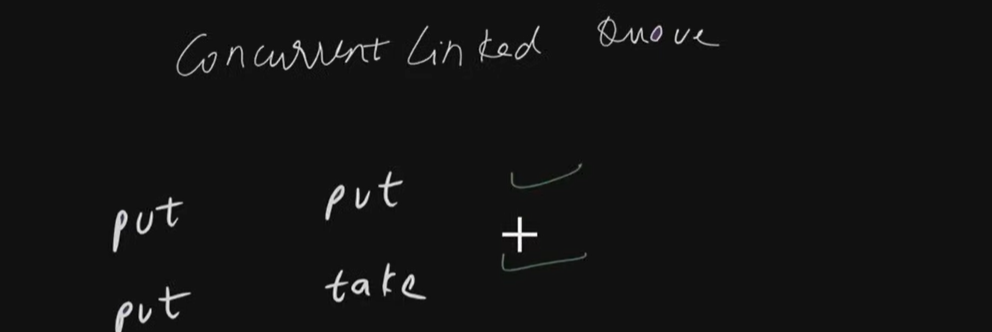 Concurrent Linked Queue
put put
put take